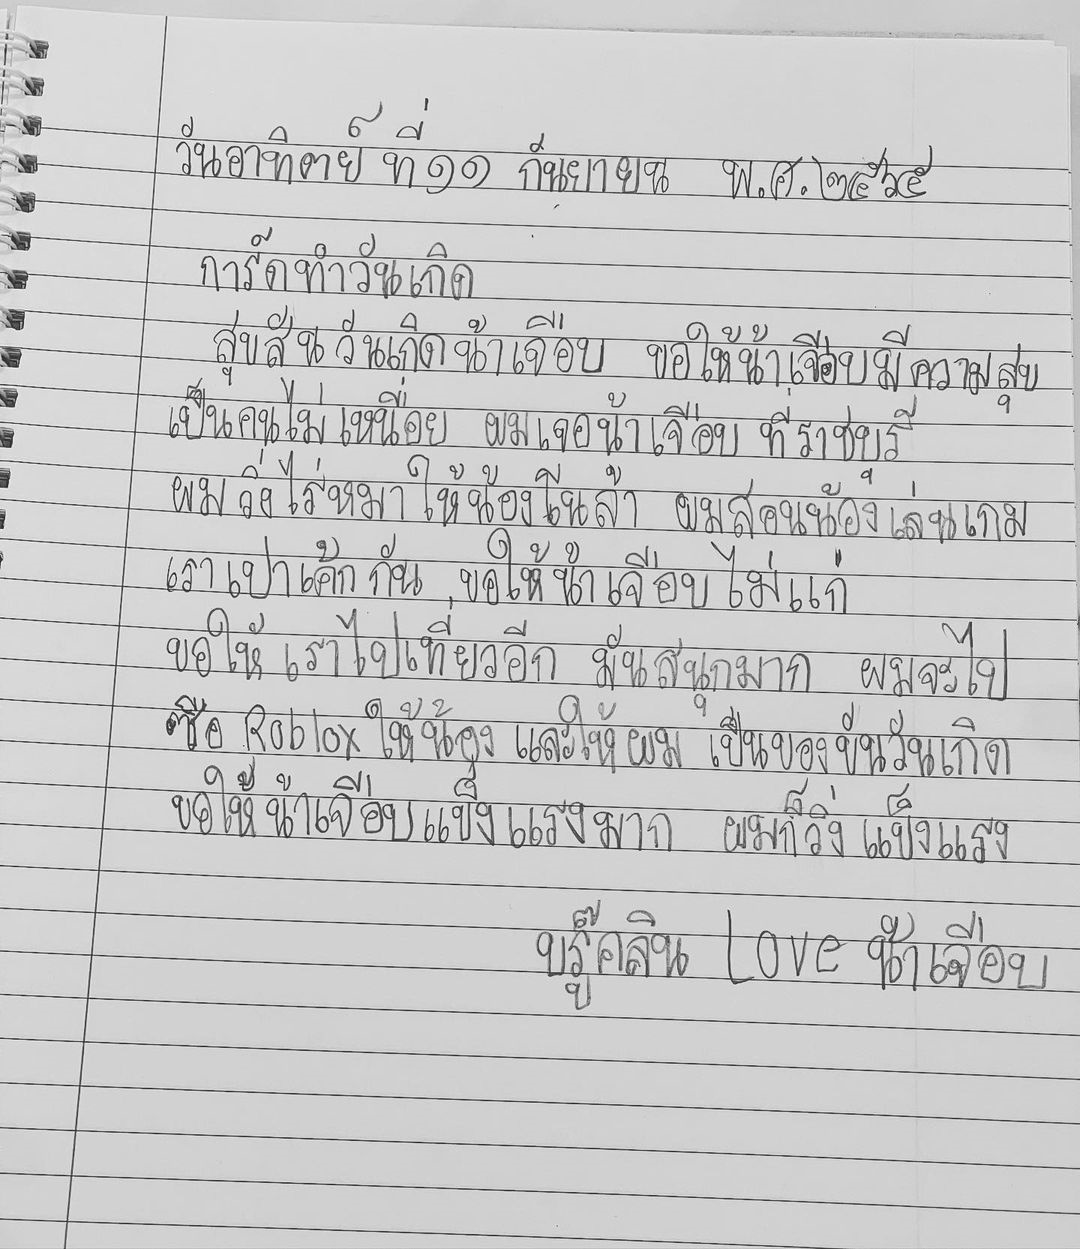 วันอาทิตย์ ที่ ๑๑ กันยายน พ.ศ. ๒๕๖๕
การ์ดทำวันเกิด
สุขสันวันเกิดน้าเจื่อบ ขอให้น้าเจื่อบมีความสุข
เป็นคนไม่เหนื่อย ผมเจอน้าเจื่อบ ที่ราชบุรี
ผมวิ่งไร่หมาให้น้องโนล่า ผมสอนน้องเล่นเกม
เราเป่าเค้กกัน ขอให้น้าเจื่อบไม่แก่
ขอให้เราไปเที่ยวอีก มันสนุกมาก ผมจะไป
ซือ Roblox ให้น้อง และให้ผม เป็นของขันวันเกิด
ขอให้น้าเจื่อบแข็งแรงมาก ผมก็วิ่งแข็งแรง
บรุ๊คลิน Love น้าเจื่อบ